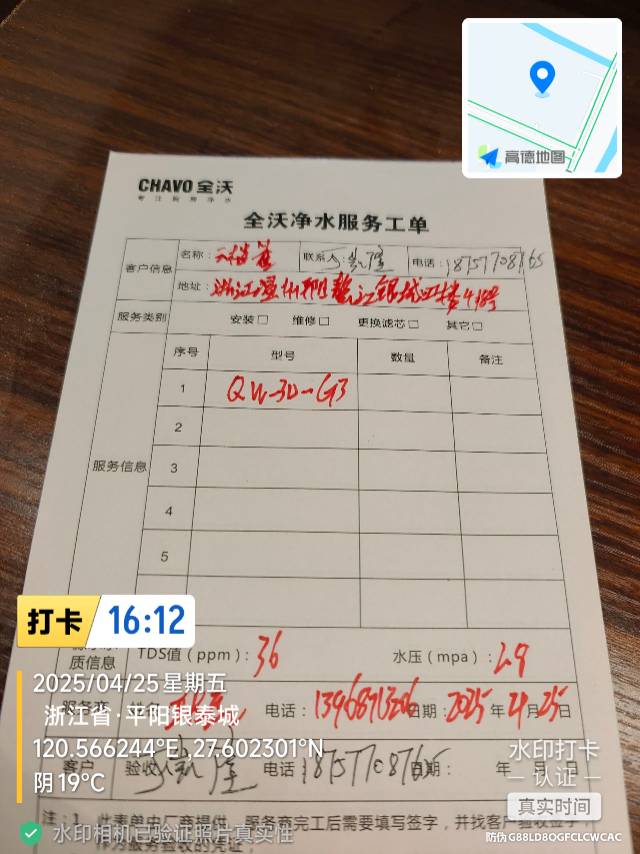 高德地图
CHAVO 全沃
专注厨房净水
全沃净水服务工单
客户信息 名称: 联系人: 电话: 18757708765
地址: 浙江温州鳌江银城四楼418号
服务类别 安装□ 维修□ 更换滤芯□ 其它□
序号 型号 数量 备注
服务信息
1 QW-3D-G3
2
3
4
5
质信息 TDS值(ppm): 36 水压(mpa): 29
服务 电话: 日期: 2025年4月25日
客户 验收人 电话 18757708765 日期: 年 月 日
注:1、此表单由厂商提供,服务商完工后需要填写签字,并找客户验收签字
作为服务验收的凭证,
打卡 16:12
2025/04/25 星期五
浙江省·平阳银泰城
120.566244°E, 27.602301°N
阴 19℃
水印打卡
认证
真实时间
水印相机已验证照片真实性
防伪 G88LD8OGFCLCWCAC